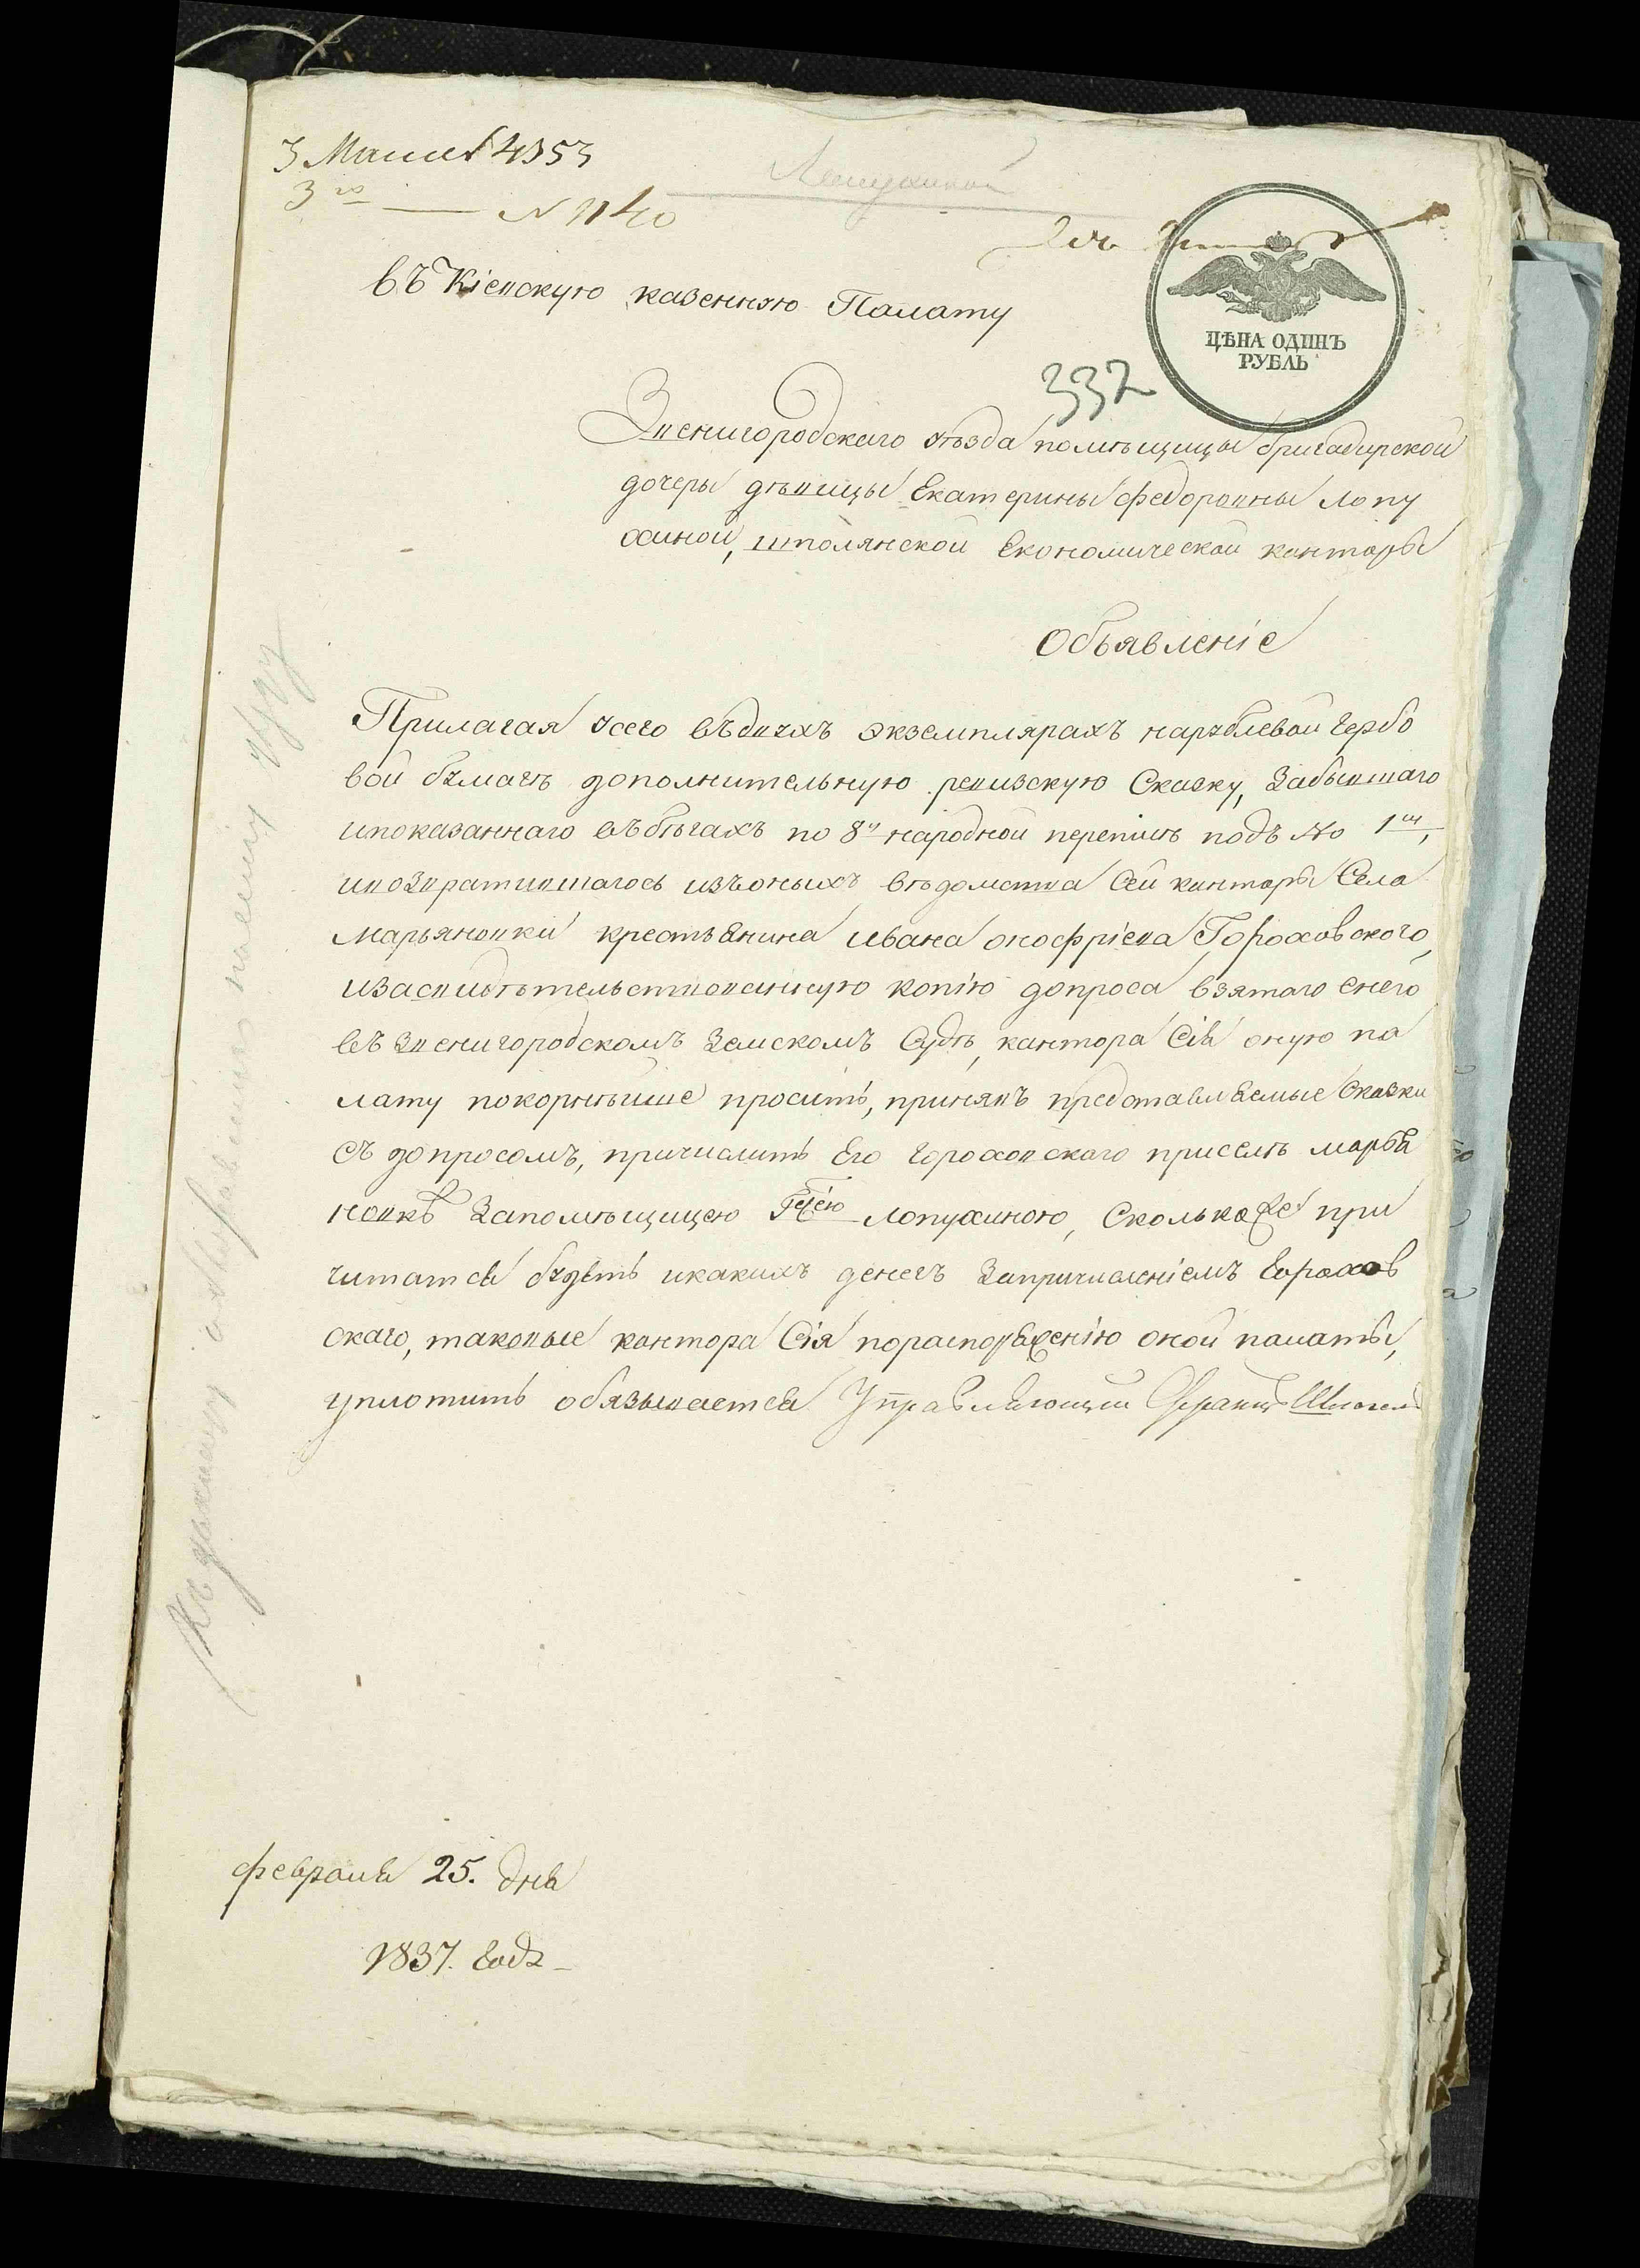 3 Марта 4353
3го — N 1140
Лопухиной
въ Кіевскую казенную Палату
ЦѢНА ОДИНЪ
РУБЛЬ
332
Звенигородскаго уѣзда помѣщицы бригадирской
дочеры дѣвицы Екатерины Федоровны Лопу
хиной, шполянской Економической канторы
Объявленіе
Прилагая усего въдвухъ экземплярахъ нарублевой гербо
вой бумагѣ дополнительную ревизскую Сказку, Забывшаго
ипоказаннаго въбѣгахъ по 8й народной переписѣ подъ No 1м,
ивозвратившагось изъоныхъ вѣдомства Сей канторы Села
Марьяновки крестьянина Ивана онофріева Гороховского,
изасвидѣтельствованную копію допроса взятаго снего
въ Звенигородскомъ Земскомъ Судѣ, кантора Сія оную па
лату покорнѣйше просить, принявъ представляемые Сказки
Съ допросомъ, причислить Его Гороховскаго приселѣ марья
новкѣ Запомѣщицею Гжею Лопухиною, Сколькоже при
читатся будеть икакихъ денегъ Запричисленіемъ Горохов
скаго, таковые кантора Сія пораспоряженію оной палаты,
уплотить обязывается Управляющій Францъ
февраля 25. дня
1837. Года